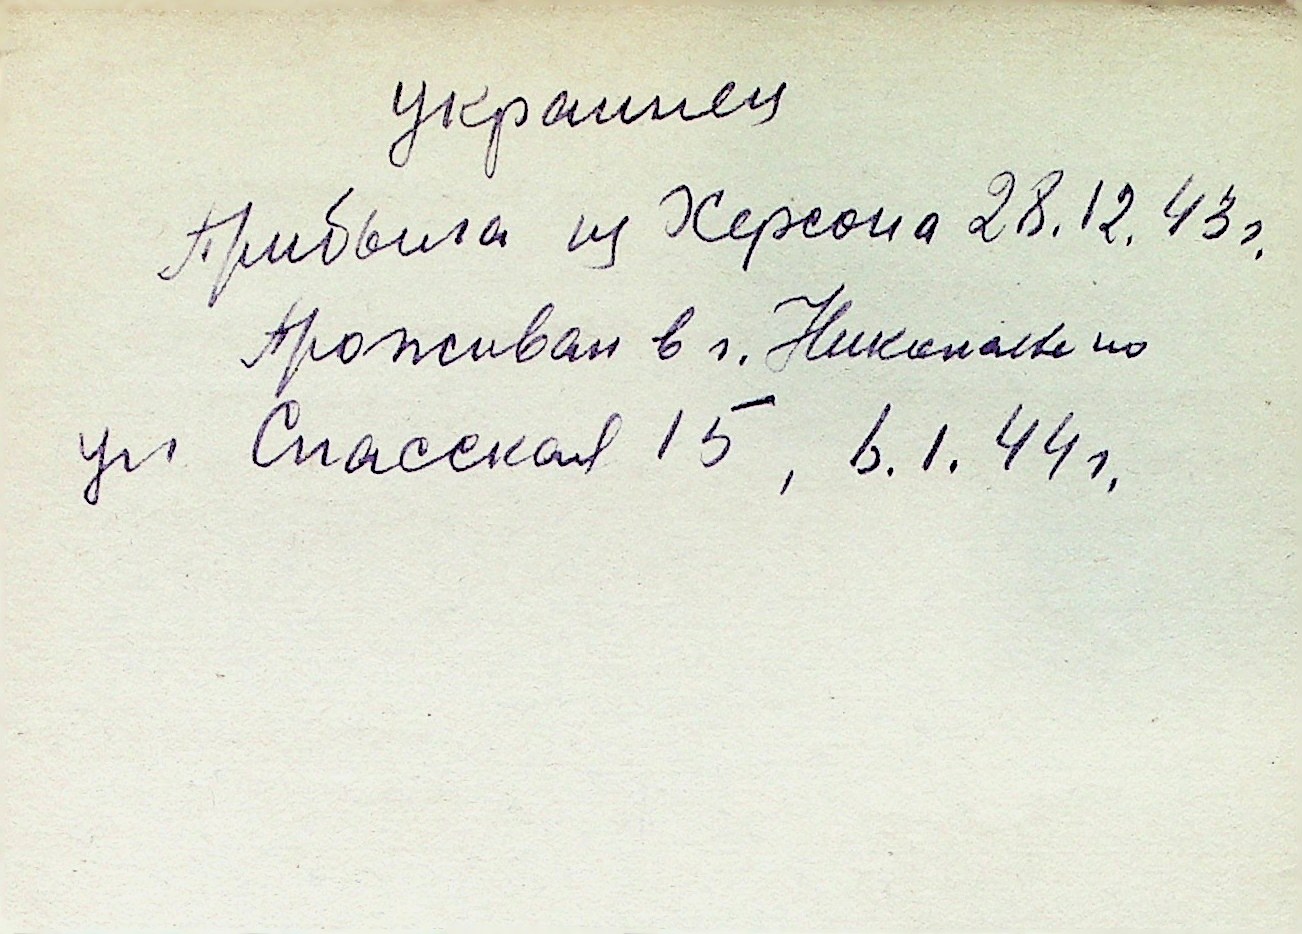 украинец
Прибыла из Херсона 28.12.43г.
Проживал в г. Николаеве по
ул Спасская 15, 6.1.44г.